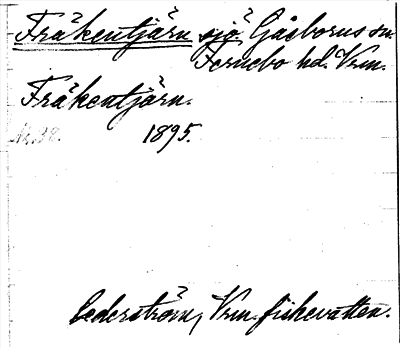 Fräkentjärn sjö Gåsborns sn
Fernebo hd. Vrm.
Fräkentjärn.
1895.
Cederström, Vrm. fiskevatten.